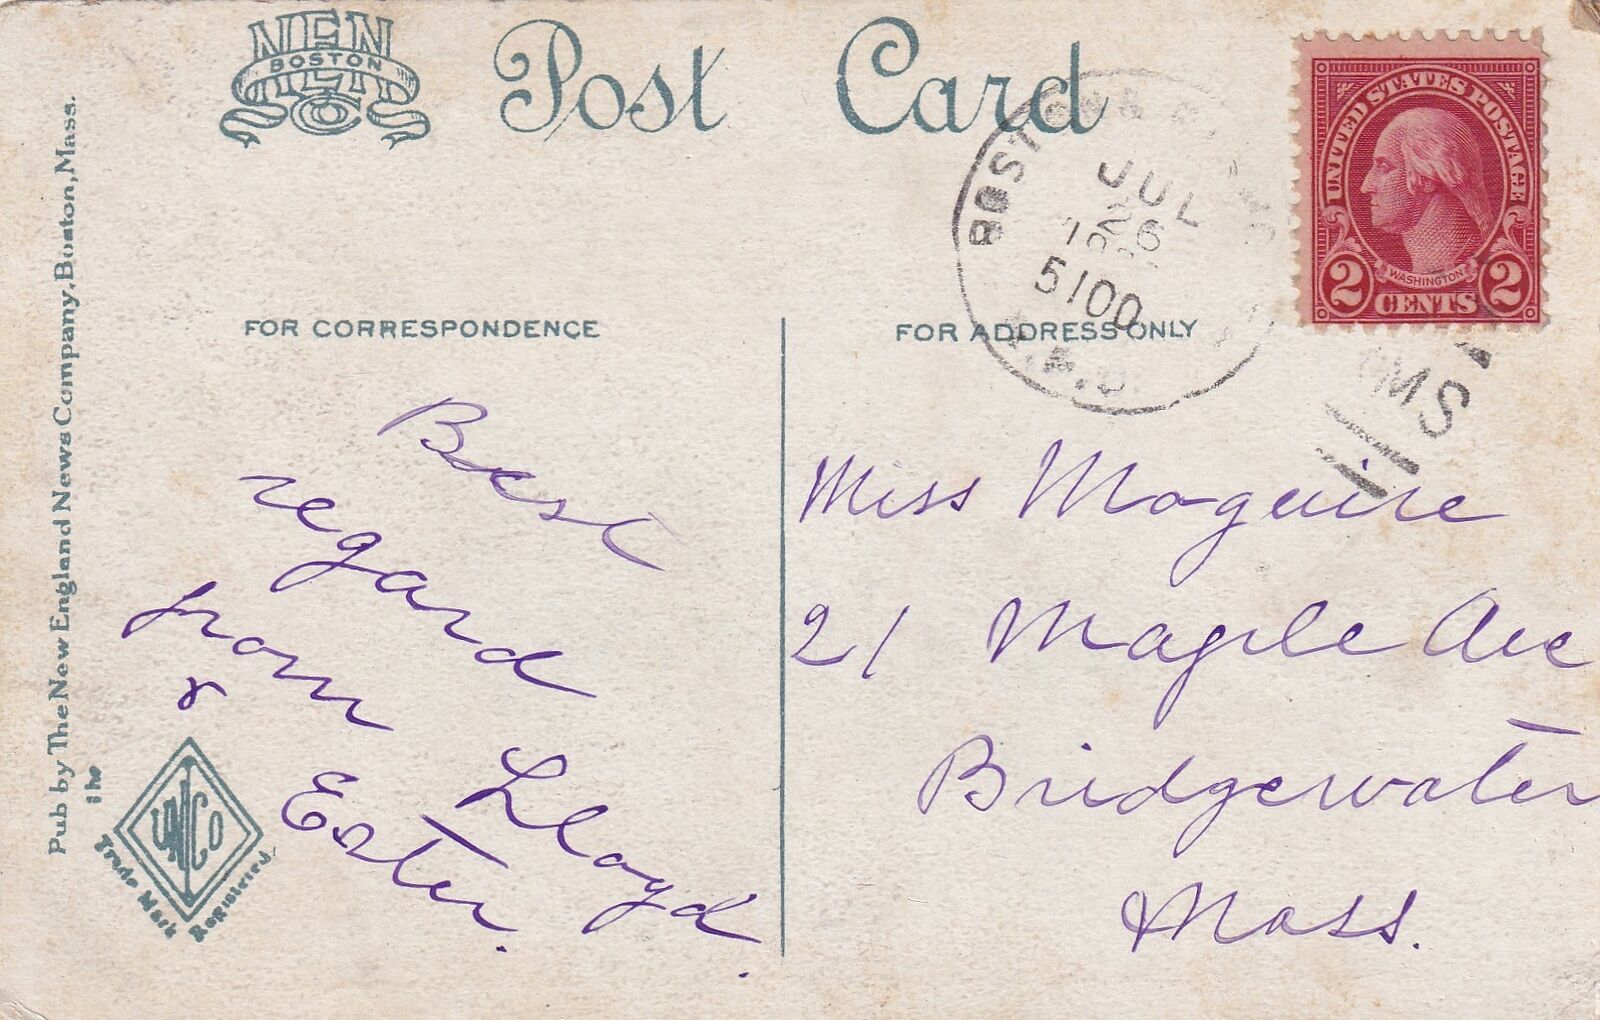 NEN
BOSTON
NEWS
CO
Post Card
Pub by The New England News Company, Boston, Mass.
BOSTON &
JUL
26
5100
R.P.O.
UNITED STATES POSTAGE
WASHINGTON
2 CENTS 2
RMS
FOR CORRESPONDENCE
FOR ADDRESS ONLY
Best
regard
from Lloyd.
& Ester.
Miss Maguire
21 Maple Ave
Bridgewater
Mass.
the
Trade Mark Registered